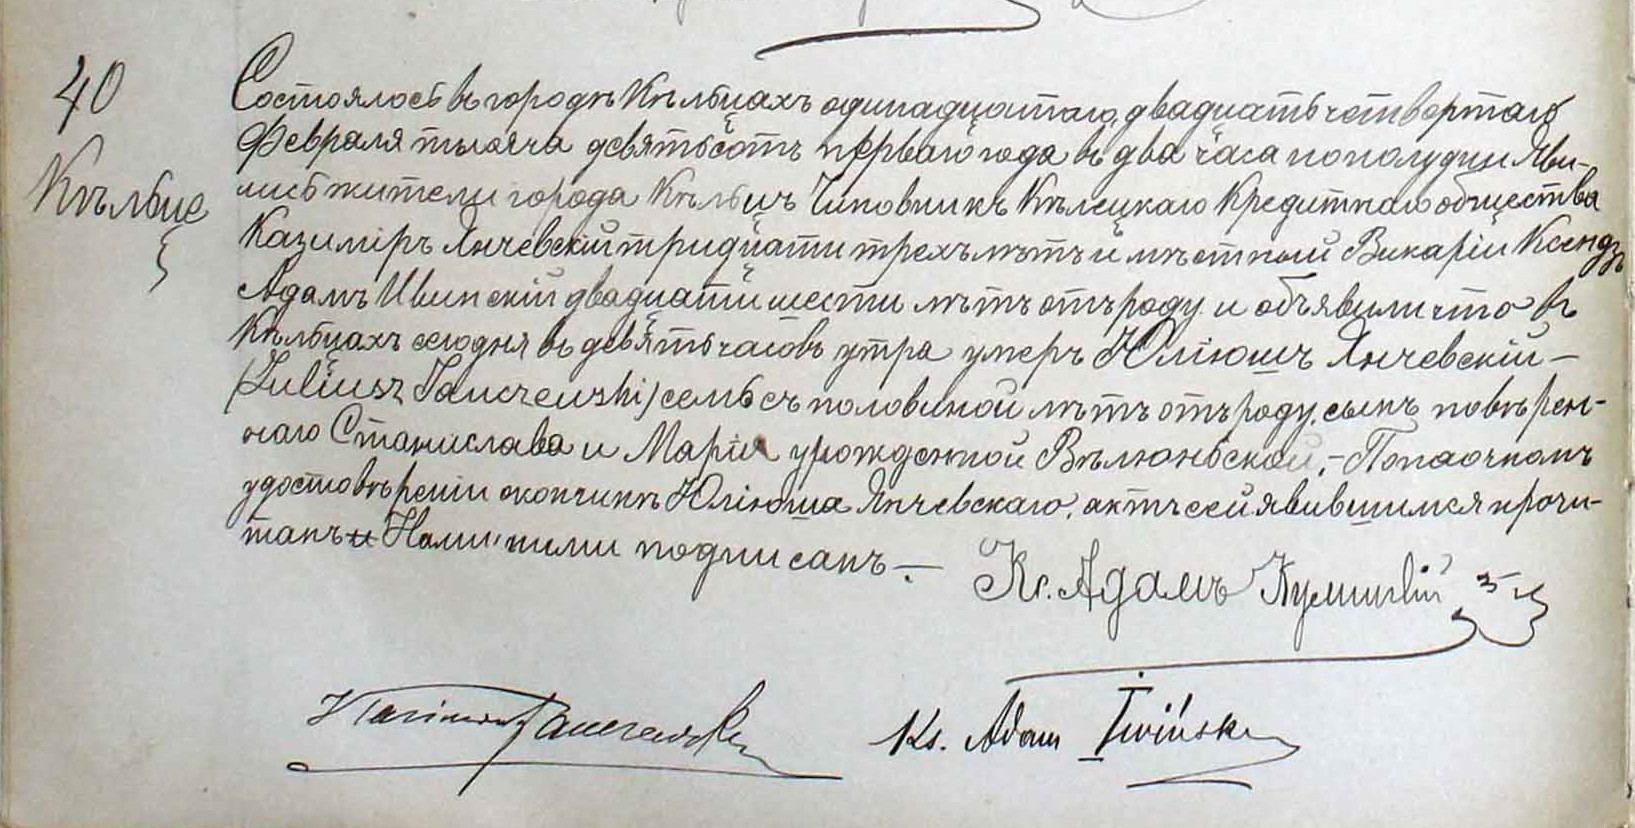 40
Кѣльце
Состоялось въ городѣ Кѣльцахъ одинадцатаго, двадцать четвертаго
Февраля тысяча девятьсотъ перваго года въ два часа по полудни Яви-
лись жители города Кѣльцъ Чиновникъ Кѣлецкаго Кредитнаго общества
Казиміръ Янчевскій тридцати трехъ лѣтъ и мѣстный Викарій Ксендзъ
Адамъ Ивинскій двадцати шести лѣтъ отъ роду и объявили что въ
Кѣльцахъ сегодня въ девять часовъ утра умеръ Юліюшъ Янчевскій –
(Juliusz Janczewski) семь съ половиной лѣтъ отъ роду, сынъ повѣрен-
наго Станислава и Марія урожденной Вѣлюньской, – По наочномъ
удостовѣреніи о кончинѣ Юліюша Янчевскаго, актъ сей явившимся прочи-
танъ и Нами, ними подписанъ. –
Кс. Адамъ
Kazimierz Janczewski
Ks. Adam Iwiński